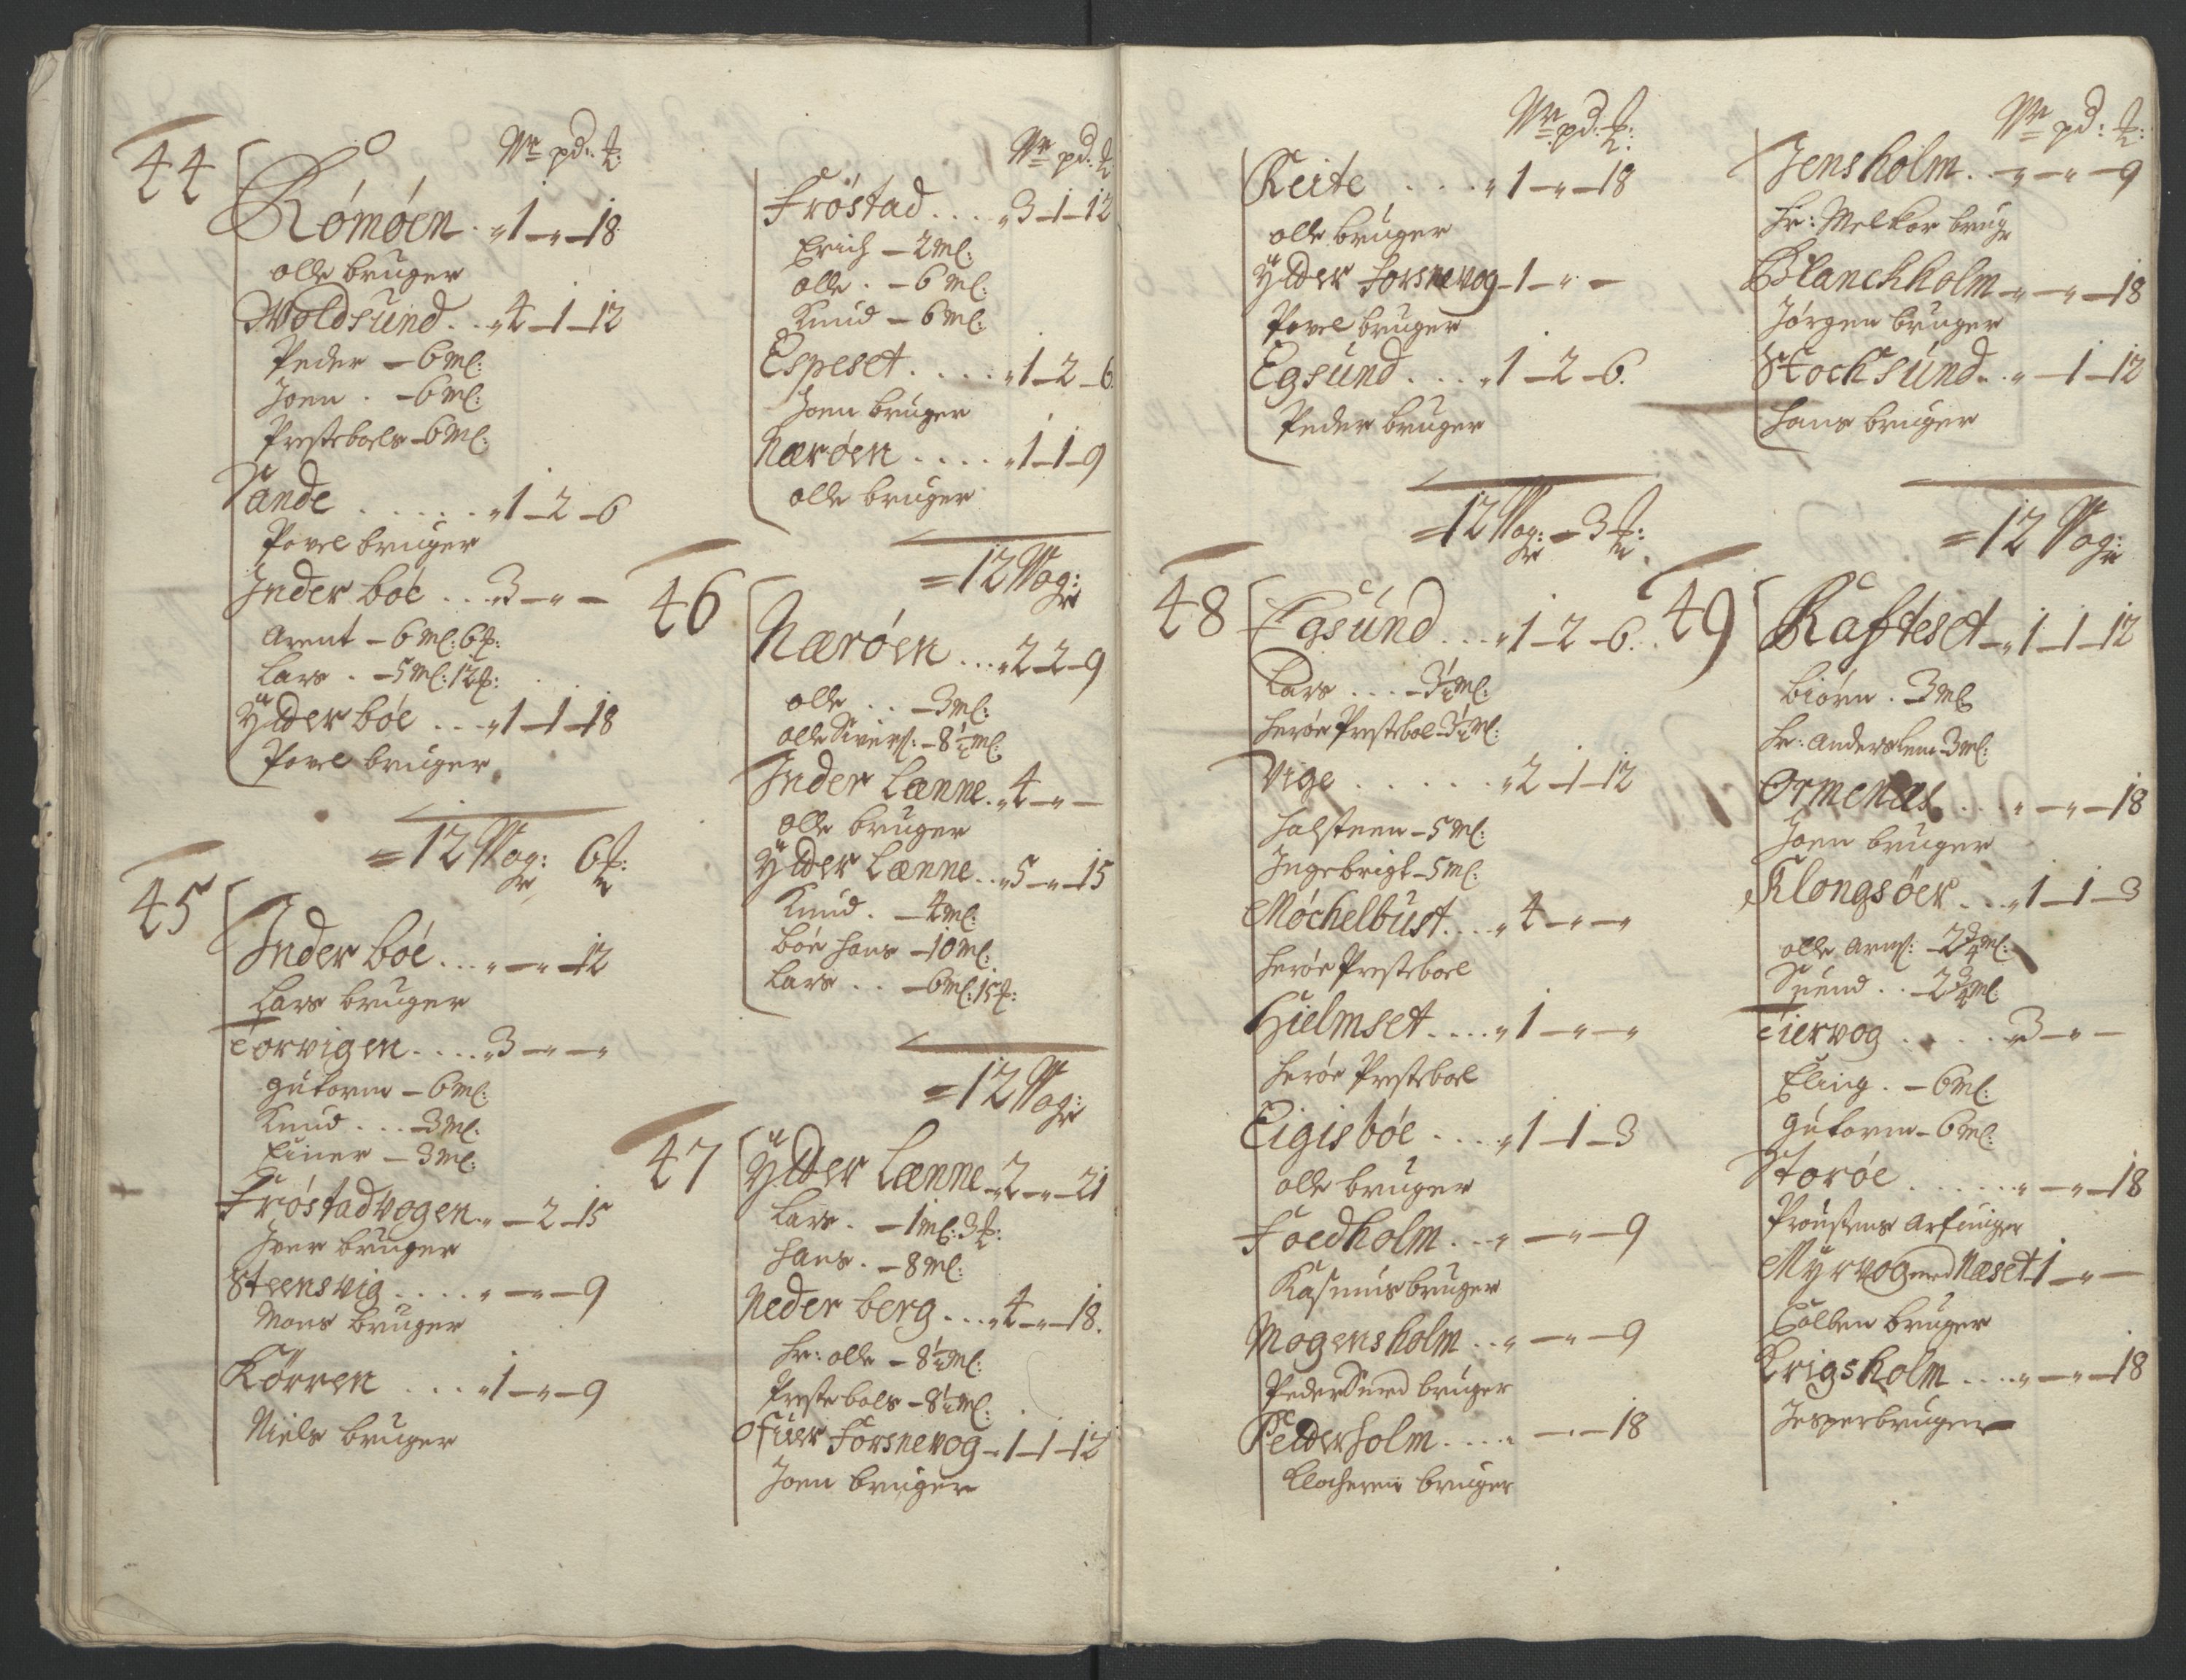 Wr pd: ₶:
44 Rómóen . „ 1 – „ – 18
olle bruger
Woldsund . . „ 4 – 1 – 12
Peder – 6 ml:
Joen . – 6 ml:
Prestebols – 6 ml:
Sande . . . . . „ 1 – 2 – 6
Povel bruger
Inderboe . . „ 3 – „ –
Arent – 6 ml: 6 ₶:
Lars . – 5 ml: 12 ₶:
Ÿtterbóe . . „ 1 – 1 – 18
Povel bruger
= 12 Wog: 6 ₶:
45 Inderbóe . . . „ – „ – 12
Lars bruger
Torvigen . . . . „ 3 – „ – „
Gutorm – 6 ml:
Knud . . . – 3 ml:
Einer – 3 ml:
Fróstadvogen . „ – 2 – 15
Iver bruger
Steensvig . . . . „ – „ – 9
Mons bruger
Kórren . . . „ 1 – „ – 9
Niels bruger
Wr pd: ₶
Fróstad . . . „ 3 – 1 – 12
Erich – 2 ml:
olle . – 6 ml:
Knud – 6 ml:
Espeset . . . . „ 1 – 2 – 6
Joen bruger
Næróen . . . . „ 1 – 1 – 9
olle bruger
= 12 Wog:
46 Næróen . . . „ 2 – 2 – 9
olle . . – 3 ml:
olle Sivers: – 8 ½ ml:
Inder Lænne . „ 4 – „ –
olle bruger
Ÿtter Lænne . . „ 5 – „ – 15
Knud . – 4 ml:
Bóe Hans – 10 ml:
Lars . . – 6 ml: 15 ₶:
= 12 Wog:
47 Ÿtter Lænne – „ 2 – „ – 21
Lars . – 1 ml: 3 ₶:
Hans . – 8 ml:
Nederberg . . . „ 4 – „ – 18
Hr: olle – 8 ½ ml:
Prestebols – 8 ½ ml:
Ofuer Forsnevog – „ 1 – 1 – 12
Joen bruger
Wr pd: ₶:
Reite . . . . „ 1 – „ – 18
olle bruger
Ÿtter Forsnevog – 1 – „ –
Povel bruger
Egsund . . . „ 1 – 2 – 6
Peder bruger
= 12 Wog: – 3 ₶:
48 Egsund . . . „ 1 – 2 – 6
Lars . . . – 3 ½ ml:
Heróe Prestebol – 3 ½ ml:
Vige . . . . . . „ 2 – 1 – 12
Halsteen – 5 ml:
Ingebrigt – 5 ml:
Móchelbust . . . „ 4 – „ – „
Heróe Prestebol
Hielmset . . . . „ 1 – „ – „
Heróe Prestebol
Eigisbóe . . . „ 1 – 1 – 3
olle bruger
Foedholm . . „ – „ – 9
Rasmus bruger
Mogensholm . . „ – „ – 9
Peder Sund bruger
Pederholm . . . . „ – „ – 18
Klocheren bruger
Wr pd: ₶:
Jensholm . – „ – „ – 9
Hr: Melkor bruger
Blanckholm – „ – „ – 18
Jórgen bruger
Stocksund . . „ – 1 – 12
Hans bruger
= 12 Wog:
49 Rafteset – „ 1 – 1 – 12
Biórn . 3 ml
Hr: Anders 3 ml:
Ormenæs . . . „ – „ – 18
Joen bruger
Klongsóer . . . „ 1 – 1 – 3
olle Arns: – 2 ¾ ml:
Svend . . – 2 ¾ ml:
Tiervog . . . . „ 3 – „ –
Eling . – 6 ml:
Gutorm – 6 ml:
Storóe . . . . . „ – „ – 18
Proustens Arfuinger
Myrvog med Næset 1 – „ –
Colben bruger
Krigsholm . . . . „ – „ – 18
Jesper bruger